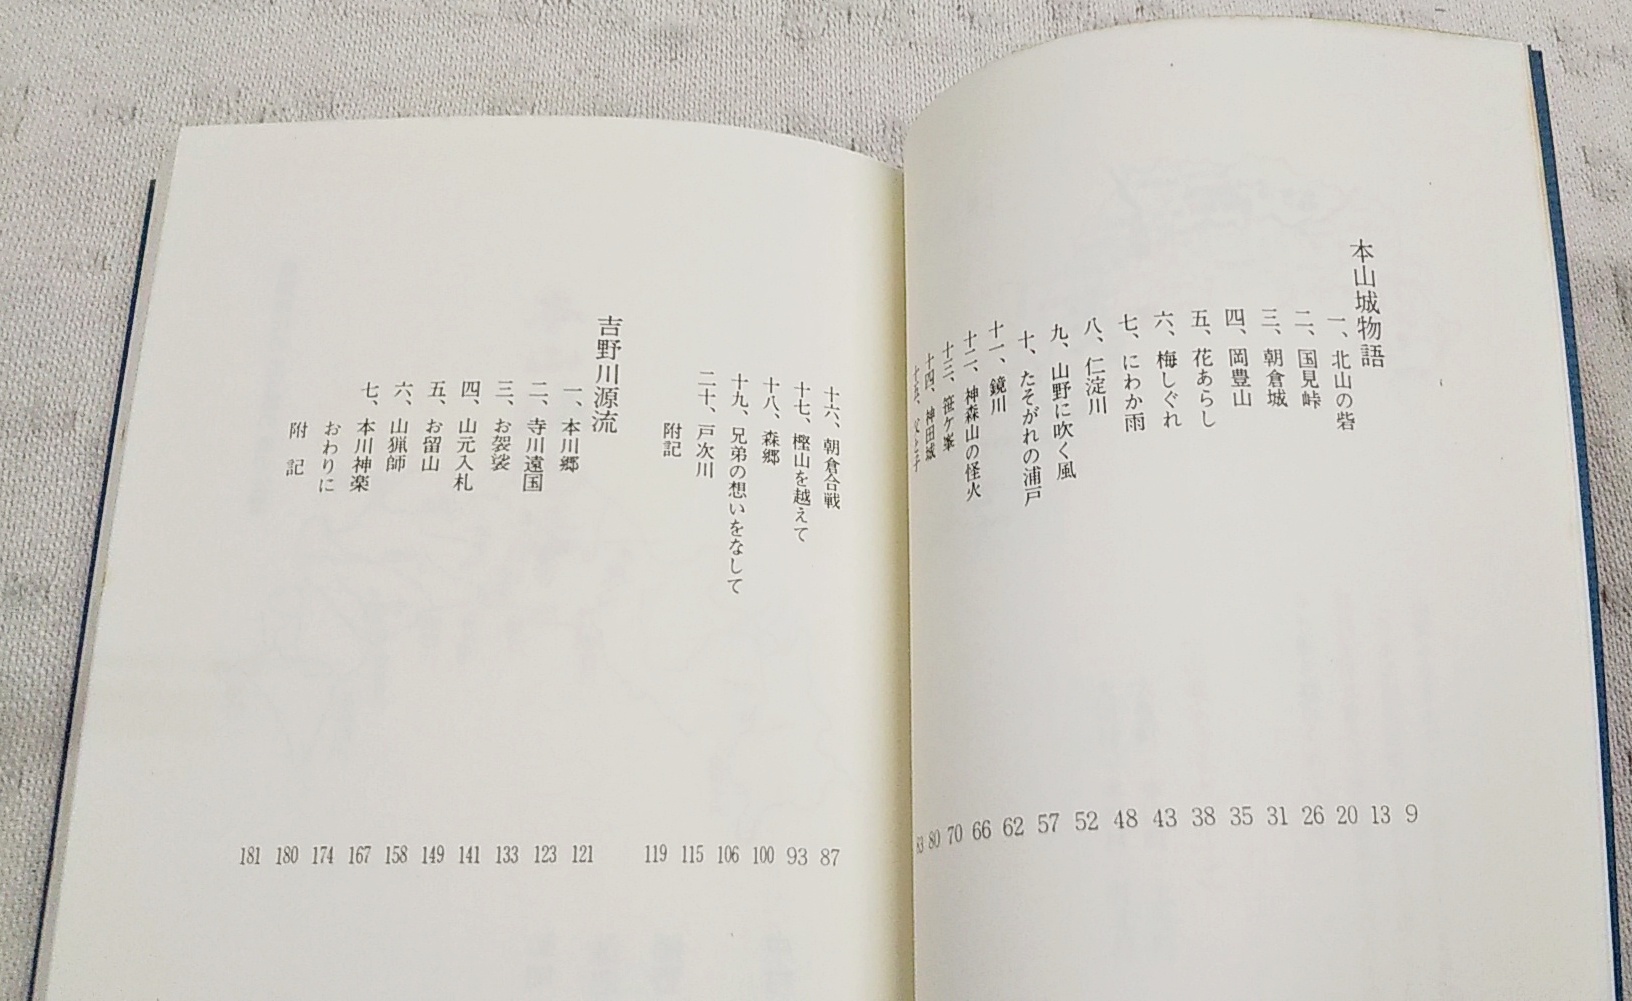 本山城物語 9
一、北山の砦 13
二、国見峠 20
三、朝倉城 26
四、岡豊山 31
五、花あらし 35
六、梅しぐれ 38
七、にわか雨 43
八、仁淀川 48
九、山野に吹く風 52
十、たそがれの浦戸 57
十一、鏡川 62
十二、神森山の怪火 66
十三、笹ケ峯 70
十四、神田城 80
十五、父と子 83
十六、朝倉合戦 87
十七、樫山を越えて 93
十八、森郷 100
十九、兄弟の想いをなして 106
二十、戸次川 115
附記 119
吉野川源流 121
一、本川郷 123
二、寺川遠国 133
三、お袈裟 141
四、山元入札 149
五、お留山 158
六、山猟師 167
七、本川神楽 174
おわりに 180
附記 181